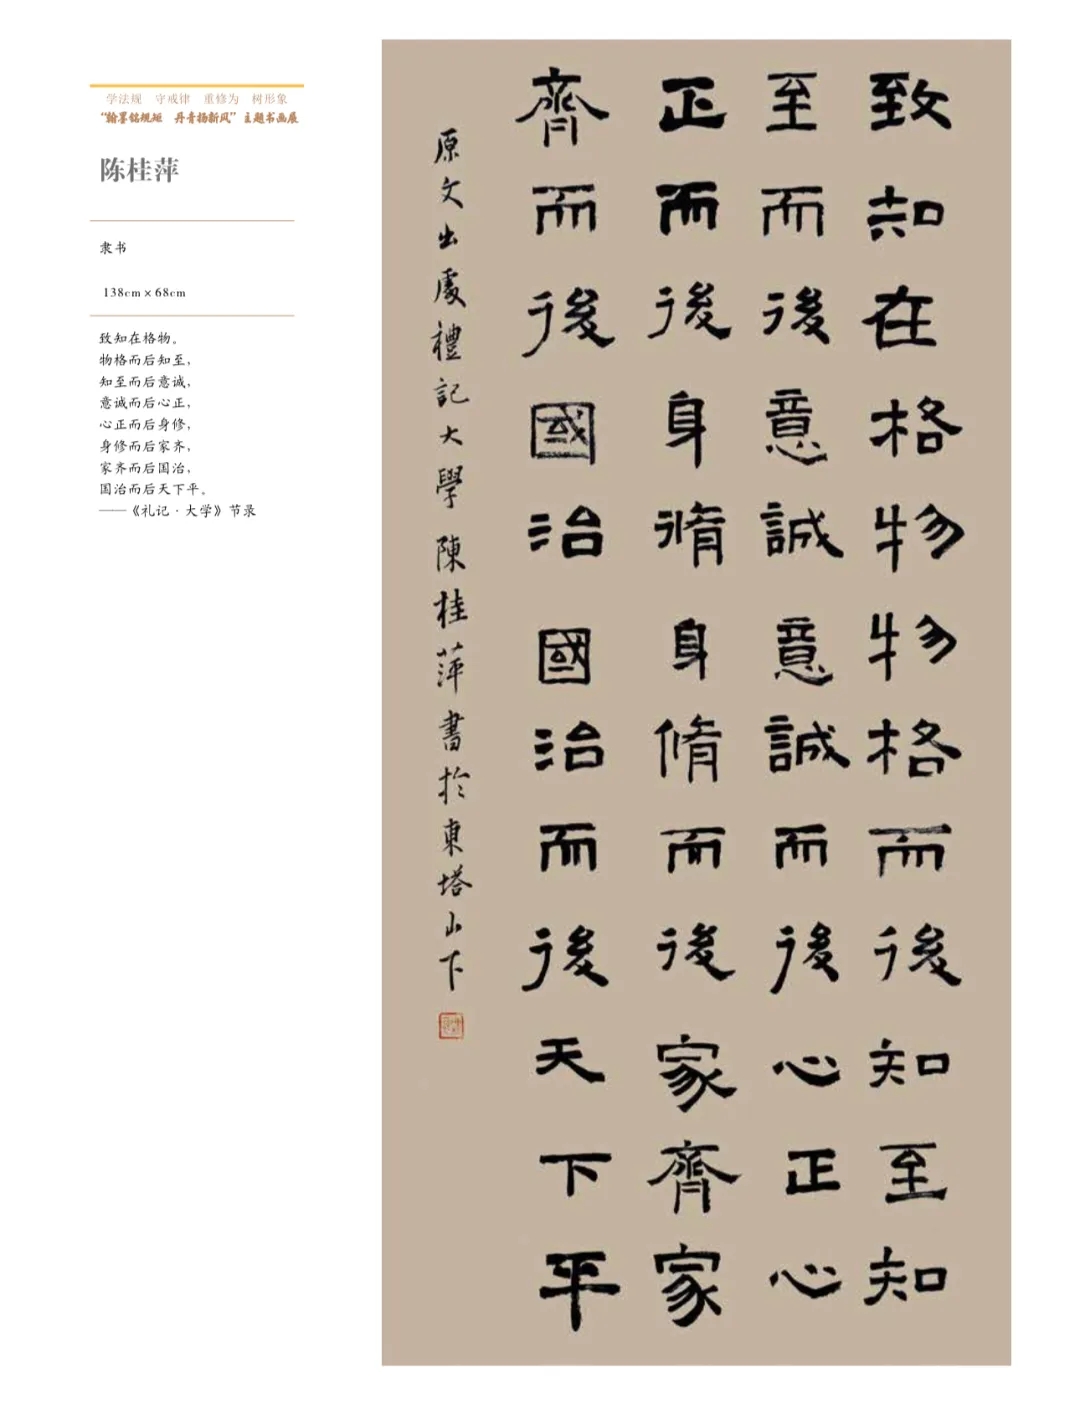 学法规 守戒律 重修为 树形象
“翰墨铭规矩 丹青扬新风”主题书画展
陈桂萍
隶书
138cm×68cm
致知在格物。
物格而后知至，
知至而后意诚，
意诚而后心正，
心正而后身修，
身修而后家齐，
家齐而后国治，
国治而后天下平。
——《礼记·大学》节录
致知在格物物格而後知至知
至而後意誠意誠而後心正心
正而後身脩身脩而後家齊家
齊而後國治國治而後天下平
原文出處禮記大學陳桂萍書於東塔山下